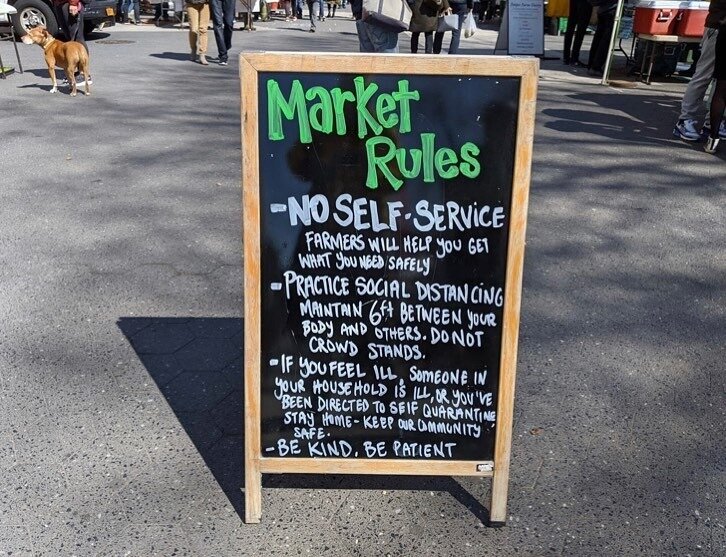 Market
Rules
- NO SELF-SERVICE
FARMERS WILL HELP YOU GET
WHAT YOU NEED SAFELY
- PRACTICE SOCIAL DISTANCING
MAINTAIN 6ft BETWEEN YOUR
BODY AND OTHERS. DO NOT
CROWD STANDS.
- IF YOU FEEL ILL, SOMEONE IN
YOUR HOUSEHOLD IS ILL, OR YOU'VE
BEEN DIRECTED TO SELF QUARANTINE
STAY HOME - KEEP OUR COMMUNITY
SAFE.
- BE KIND, BE PATIENT